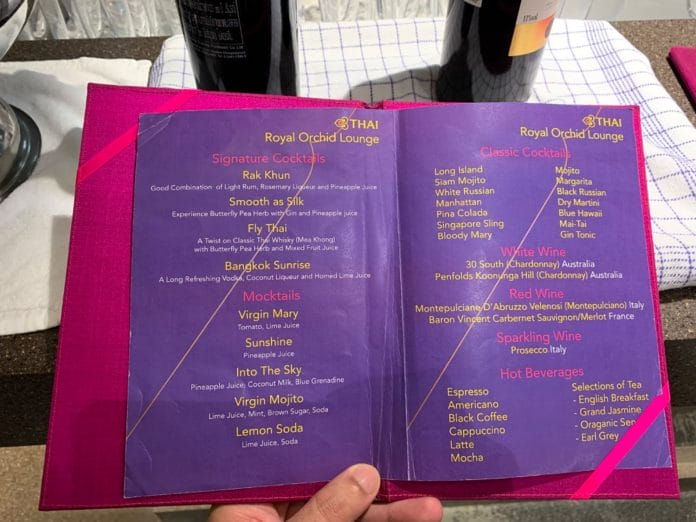 11%vol
THAI
Royal Orchid Lounge
Signature Cocktails
Rak Khun
Good Combination of Light Rum, Rosemary Liqueur and Pineapple Juice
Smooth as Silk
Experience Butterfly Pea Herb with Gin and Pineapple juice
Fly Thai
A Twist on Classic Thai Whisky (Mea Khong)
with Butterfly Pea Herb and Mixed Fruit Juice
Bangkok Sunrise
A Long Refreshing Vodka, Coconut Liqueur and Horned Lime Juice
Mocktails
Virgin Mary
Tomato, Lime Juice
Sunshine
Pineapple Juice
Into The Sky
Pineapple Juice, Coconut Milk, Blue Grenadine
Virgin Mojito
Lime Juice, Mint, Brown Sugar, Soda
Lemon Soda
Lime Juice, Soda
THAI
Royal Orchid Lounge
Classic Cocktails
Long Island
Siam Mojito
White Russian
Manhattan
Pina Colada
Singapore Sling
Bloody Mary
Mojito
Margarita
Black Russian
Dry Martini
Blue Hawaii
Mai-Tai
Gin Tonic
White Wine
30 South (Chardonnay) Australia
Penfolds Koonunga Hill (Chardonnay) Australia
Red Wine
Montepulciane D'Abruzzo Velenosi (Montepulciano) Italy
Baron Vincent Carbernet Sauvignon/Merlot France
Sparkling Wine
Prosecco Italy
Hot Beverages
Espresso
Americano
Black Coffee
Cappuccino
Latte
Mocha
Selections of Tea
- English Breakfast
- Grand Jasmine
- Oraganic
- Earl Grey